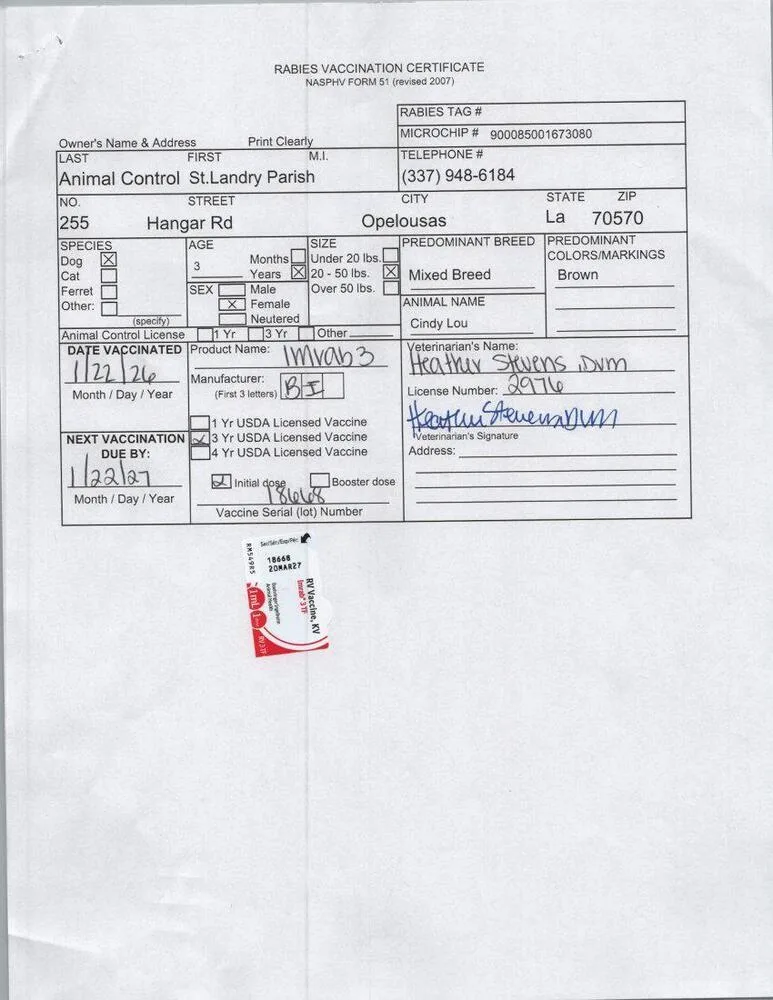 RABIES VACCINATION CERTIFICATE
NASPHV FORM 51 (revised 2007)
RABIES TAG #
MICROCHIP # 900085001673080
Owner's Name & Address Print Clearly
LAST FIRST M.I. TELEPHONE #
Animal Control St.Landry Parish (337) 948-6184
NO. STREET CITY STATE ZIP
255 Hangar Rd Opelousas La 70570
SPECIES AGE SIZE PREDOMINANT BREED PREDOMINANT
COLORS/MARKINGS
Dog Months Under 20 lbs.
3
Cat Years 20 - 50 lbs. Mixed Breed Brown
Ferret SEX Male Over 50 lbs.
Other: Female ANIMAL NAME
(specify) Neutered Cindy Lou
Animal Control License 1 Yr 3 Yr Other
DATE VACCINATED Product Name: Imrab 3 Veterinarian's Name:
1/22/26 Heather Stevens, DVM
Month / Day / Year Manufacturer: BI License Number: 2976
(First 3 letters)
Heather Stevens DVM
1 Yr USDA Licensed Vaccine
NEXT VACCINATION 3 Yr USDA Licensed Vaccine Veterinarian's Signature
DUE BY: 4 Yr USDA Licensed Vaccine Address:
1/22/27
Initial dose Booster dose
Month / Day / Year 18668
Vaccine Serial (lot) Number
Ser/Sér/Exp/Pér:
18668
20MAR27
RM549R5
RV Vaccine, KV
Imrab® 3 TF
Boehringer Ingelheim
Animal Health
1 mL
RV 3 TF